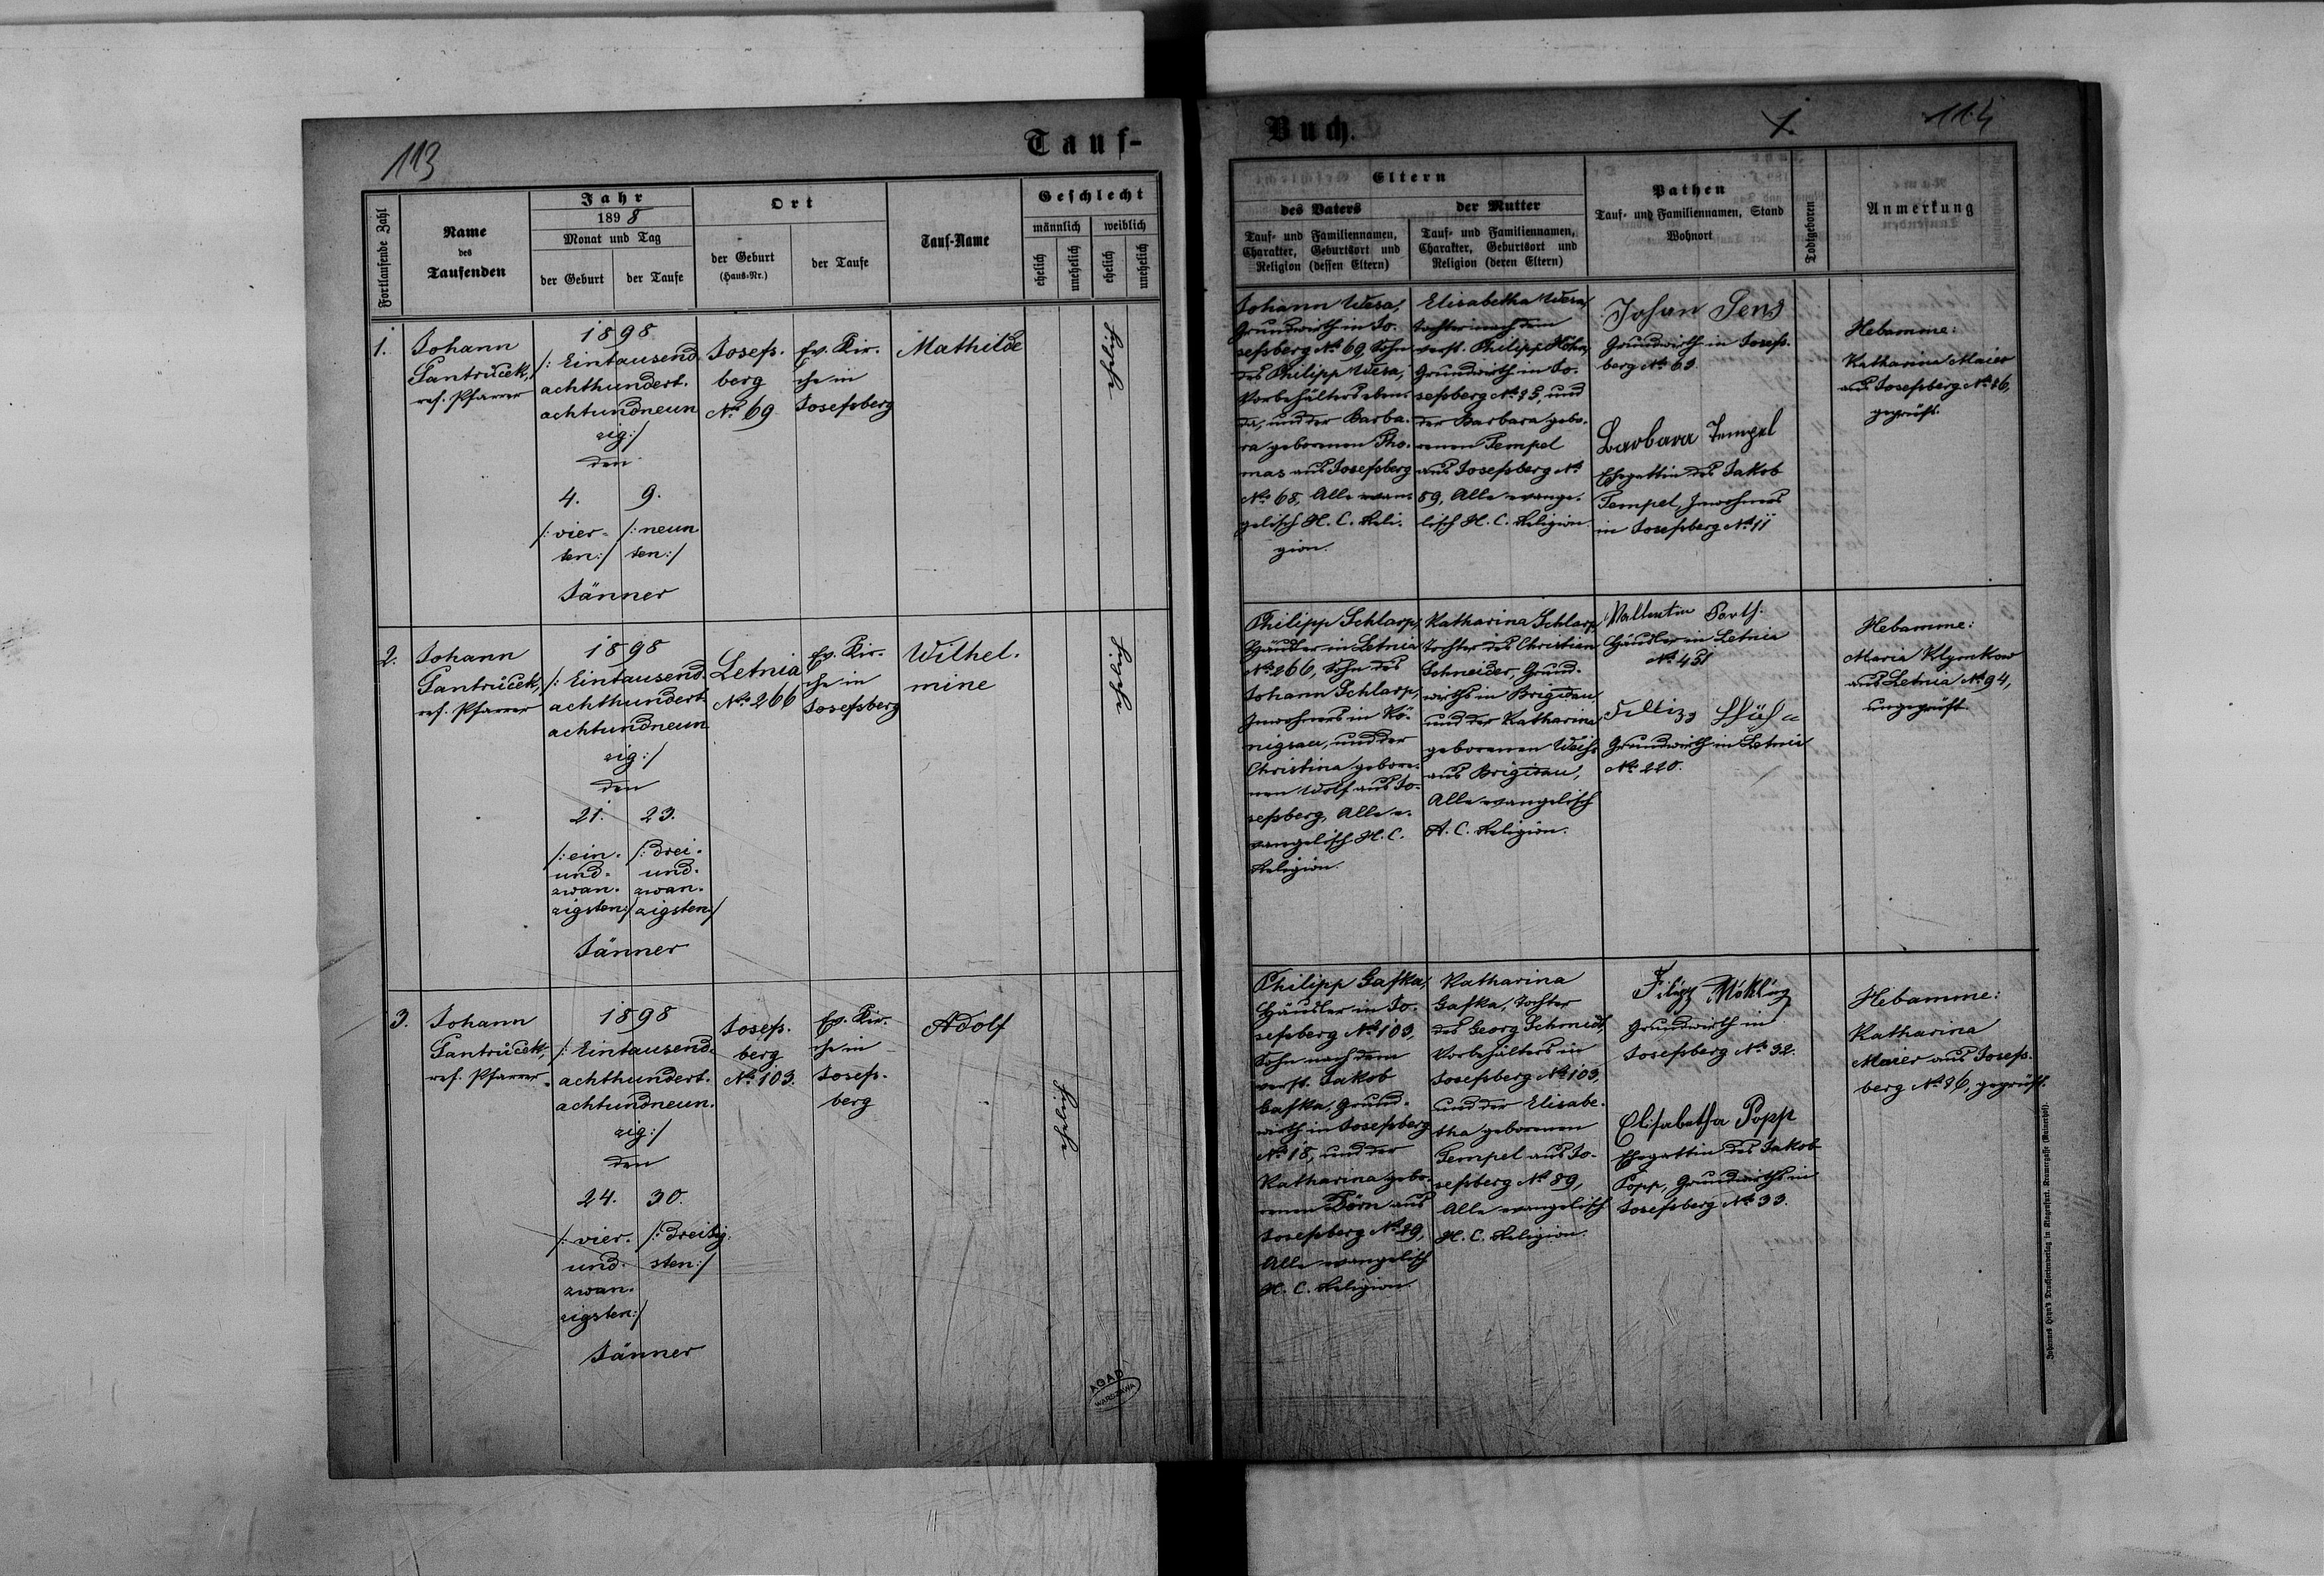 113
Tauf-
Fortlaufende Zahl
Name
des
Taufenden
Jahr
1898
Monat und Tag
der Geburt
der Taufe
Ort
der Geburt
(Haus-Nr.)
der Taufe
Tauf-Name
Geschlecht
männlich
weiblich
ehelich
unehelich
ehelich
unehelich
1.
Johann
Jantrůček,
ref. Pfarrer
1898
/: Eintausend
achthundert.
achtundneun
zig:/
den
4.
9.
/: vier-
ten:/
/: neun
ten:/
Jänner
Josefs.
berg
No 69
Ev. Kir-
che in
Josefsberg
Mathilde
ehelich
2.
Johann
Jantrůček,
ref. Pfarrer
1898
/: Eintausend.
achthundert.
achtundneun
zig:/
den
21.
23.
/: ein-
und-
zwan-
zigsten:/
/: drei-
und-
zwan-
zigsten:/
Jänner
Letnia
No 266
Ev. Kir-
che in
Josefsberg
Wilhel.
mine
ehelich
3.
Johann
Jantrůček,
ref. Pfarrer
1898
/: Eintausend-
achthundert.
achtundneun.
zig:/
den
24.
30.
/: vier-
und-
zwan-
zigsten:/
/: dreißig-
sten:/
Jänner
Josefs.
berg
No 103.
Ev. Kir-
che in
Josefs-
berg
Adolf
ehelich
AGAD
WARSZAWA
Buch.
1.
Eltern
des Vaters
Tauf- und Familiennamen,
Charakter, Geburtsort und
Religion (dessen Eltern)
der Mutter
Tauf- und Familiennamen,
Charakter, Geburtsort und
Religion (deren Eltern)
Pathen
Tauf- und Familiennamen, Stand
Wohnort
Todtgeboren
Anmerkung
Johann Wesa,
Grundwirth in Jo-
sefsberg No 69, Sohn
des Philipp Wesa,
Vorbehälters eben-
da, und der Barba-
ra geborenen Tho-
mas aus Josefsberg
No 68, Alle evan-
gelisch H. C. Reli-
gion.
Elisabetha Wesa,
Tochter nach dem
verst. Philipp Höhn,
Grundwirth in Jo-
sefsberg No 85, und
der Barbara gebo-
renen Tempel
aus Josefsberg No
89, Alle evange-
lisch H. C. Religion.
Johan Sens
Grundwirth in Josefs-
berg No 63.
Barbara Tempel
Ehegattin des Jakob
Tempel, Inwohners
in Josefsberg No 11
Hebamme:
Katharina Maier
aus Josefsberg No 86,
geprüft.
Philipp Schlarp,
Häusler in Letnia
No 266, Sohn des
Johann Schlarp,
Inwohners in Kö-
nigsau, und der
Christina gebore-
nen Wolf aus Jo-
sefsberg, Alle e-
vangelisch H. C.
Religion.
Katharina Schlarp
Tochter des Christian
Schneider, Grund-
wirths in Brigidau,
und der Katharina
geborenen Weiß
aus Brigidau,
Alle evangelisch
A. C. Religion.
Häusler in Letnia
No 451
Grundwirth in Letnia
No 220.
Hebamme:
Maria Klymkow
aus Letnia No 94,
ungeprüft.
Philipp Gafka,
Häusler in Jo-
sefsberg No 103,
Sohn nach dem
verst. Jakob
Gafka, Grund-
wirth in Josefsberg
No 18, und der
Katharina gebo-
renen Dörn aus
Josefsberg No 29,
Alle evangelisch
H. C. Religion.
Katharina
Gafka, Tochter
des Georg Schmidt,
Vorbehälters in
Josefsberg No 103,
und der Elisabe-
tha geborenen
Tempel aus Jo-
sefsberg No 89,
Alle evangelisch
H. C. Religion.
Grundwirth in
Josefsberg No 32.
Elisabetha Popp
Ehegattin des Jakob
Popp, Grundwirths in
Josefsberg No 33.
Hebamme:
Katharina
Maier aus Josefs-
berg No 86, geprüft.